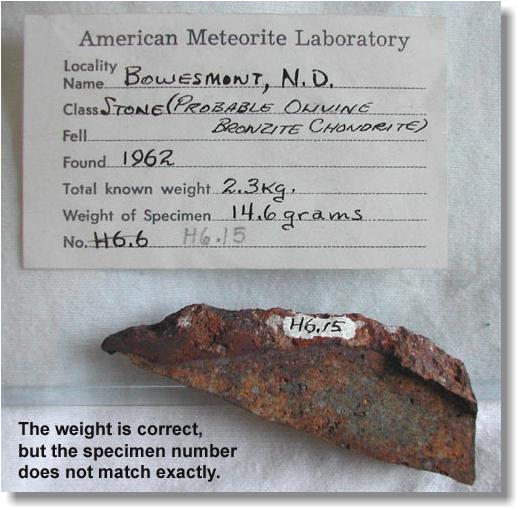 American Meteorite Laboratory
Locality
Name BOWESMONT, N.D.
Class STONE (PROBABLE OLIVINE
BRONZITE CHONDRITE)
Fell
Found 1962
Total known weight 2.3Kg.
Weight of Specimen 14.6 grams
No. H6.6 H6.15
H6.15
The weight is correct,
but the specimen number
does not match exactly.